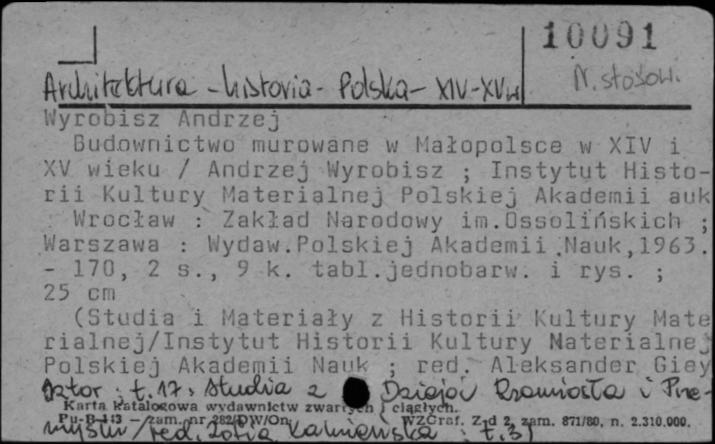 10091
Architektura - historia - Polska - XIV-XVw
N. stosow.
Wyrobisz Andrzej
Budownictwo murowane w Małopolsce w XIV i
XV wieku / Andrzej Wyrobisz ; Instytut Histo-
rii Kultury Materialnej Polskiej Akademii auk
Wrocław : Zakład Narodowy im.Ossolińskich ;
Warszawa : Wydaw.Polskiej Akademii Nauk,1963.
- 170, 2 s., 9 k. tabl.jednobarw. i rys. ;
25 cm
(Studia i Materiały z Historii Kultury Mate
rialnej/Instytut Historii Kultury Materialnej
Polskiej Akademii Nauk ; red. Aleksander Giey
sztor ; t.17 : Studia z Dziejów Rzemiosła i Prze-
Karta katalogowa wydawnictw zwartych i ciągłych.
Pu-B-113 – zam. nr 282/DW/On; WZGraf. Z-d 2, zam. 871/80, n. 2.310.000.
mysłu / red. Zofia Kamieńska ; t. 3)